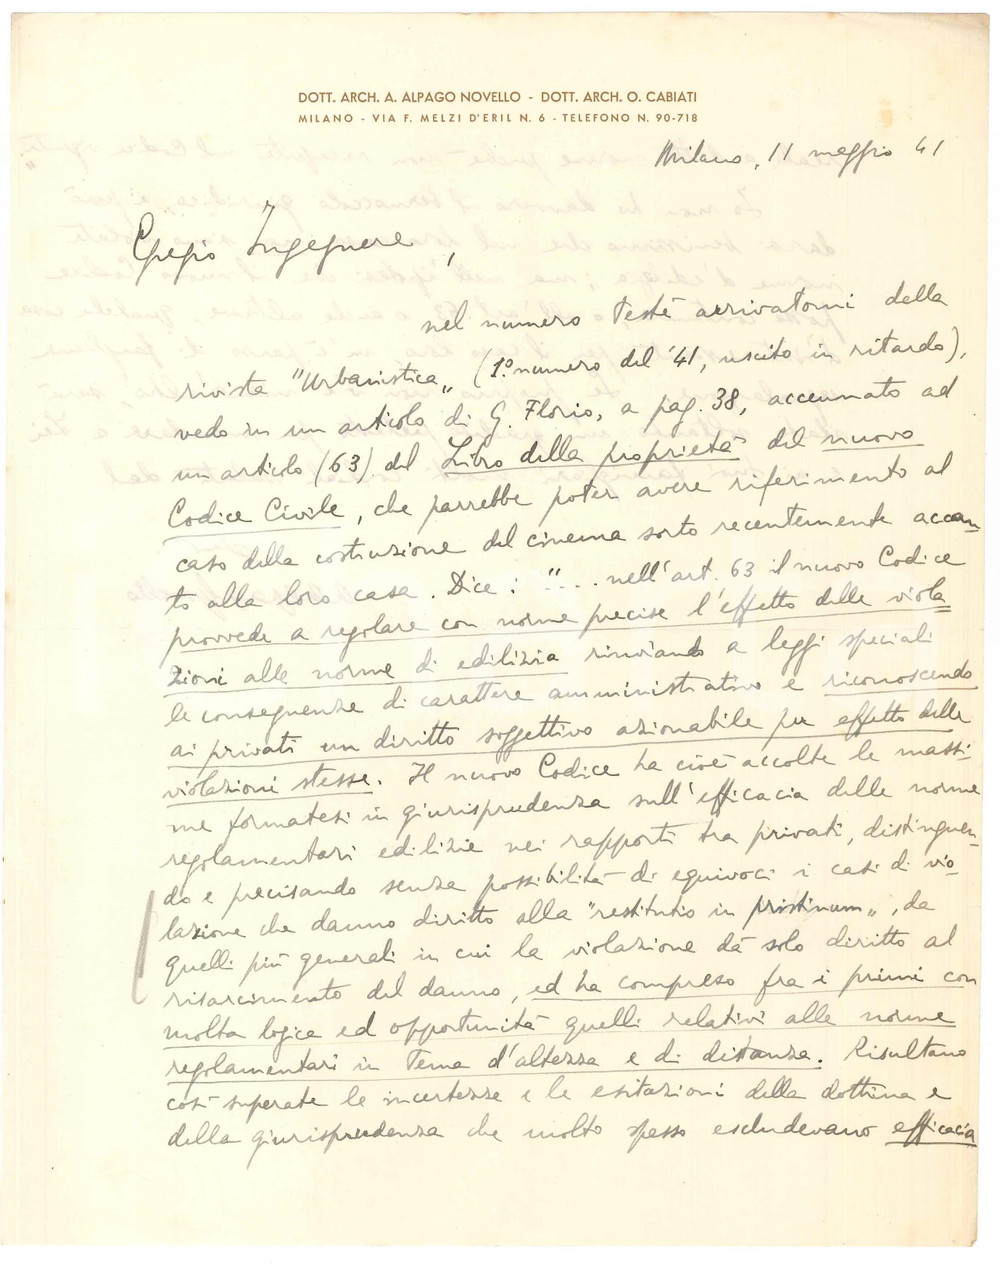 DOTT. ARCH. A. ALPAGO NOVELLO - DOTT. ARCH. O. CABIATI
MILANO - VIA F. MELZI D'ERIL N. 6 - TELEFONO N. 90-718
Milano, 11 maggio 41
Egregio Ingegnere,
nel numero testè arrivatomi della
rivista "Urbanistica„ (1° numero del '41, uscito in ritardo),
vedo in un articolo di G. Florio, a pag. 38, accennato ad
un articolo (63) del Libro della proprietà del nuovo
Codice Civile, che parrebbe poter avere riferimento al
caso della costruzione del cinema sorto recentemente accan=
to alla loro casa. Dice: "... nell'art. 63 il nuovo Codice
provvede a regolare con norme precise l'effetto delle viola=
zioni alle norme di edilizia rinviando a leggi speciali
le conseguenze di carattere amministrativo e riconoscendo
ai privati un diritto soggettivo azionabile per effetto delle
violazioni stesse. Il nuovo Codice ha cioè accolte le massi-
me formatesi in giurisprudenza sull'efficacia delle norme
regolamentari edilizie nei rapporti tra privati, distinguen-
do e precisando senza possibilità di equivoci i casi di vio-
lazione che danno diritto alla "restitutio in pristinum„, da
quelli più generali in cui la violazione dà solo diritto al
risarcimento del danno, ed ha compreso fra i primi con
molta logica ed opportunità quelli relativi alle norme
regolamentari in tema d'altezza e di distanza. Risultano
così superate le incertezze e le esitazioni della dottrina e
della giurisprudenza che molto spesso escludevano efficacia